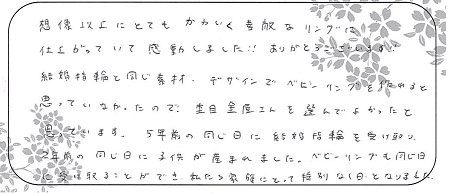 想像以上にとてもかわいく素敵なリングに
仕上がっていて感動しました!! ありがとうございます!
結婚指輪と同じ素材、デザインでベビーリングを作れると
思っていなかったので、杢目金屋さんを選んでよかったと
思っています。5年前の同じ日に結婚指輪を受け取り、
2年前の同じ日に子供が産まれました。ベビーリングも同じ日
に受け取ることができ、私たち家族にとって特別な日となりました。